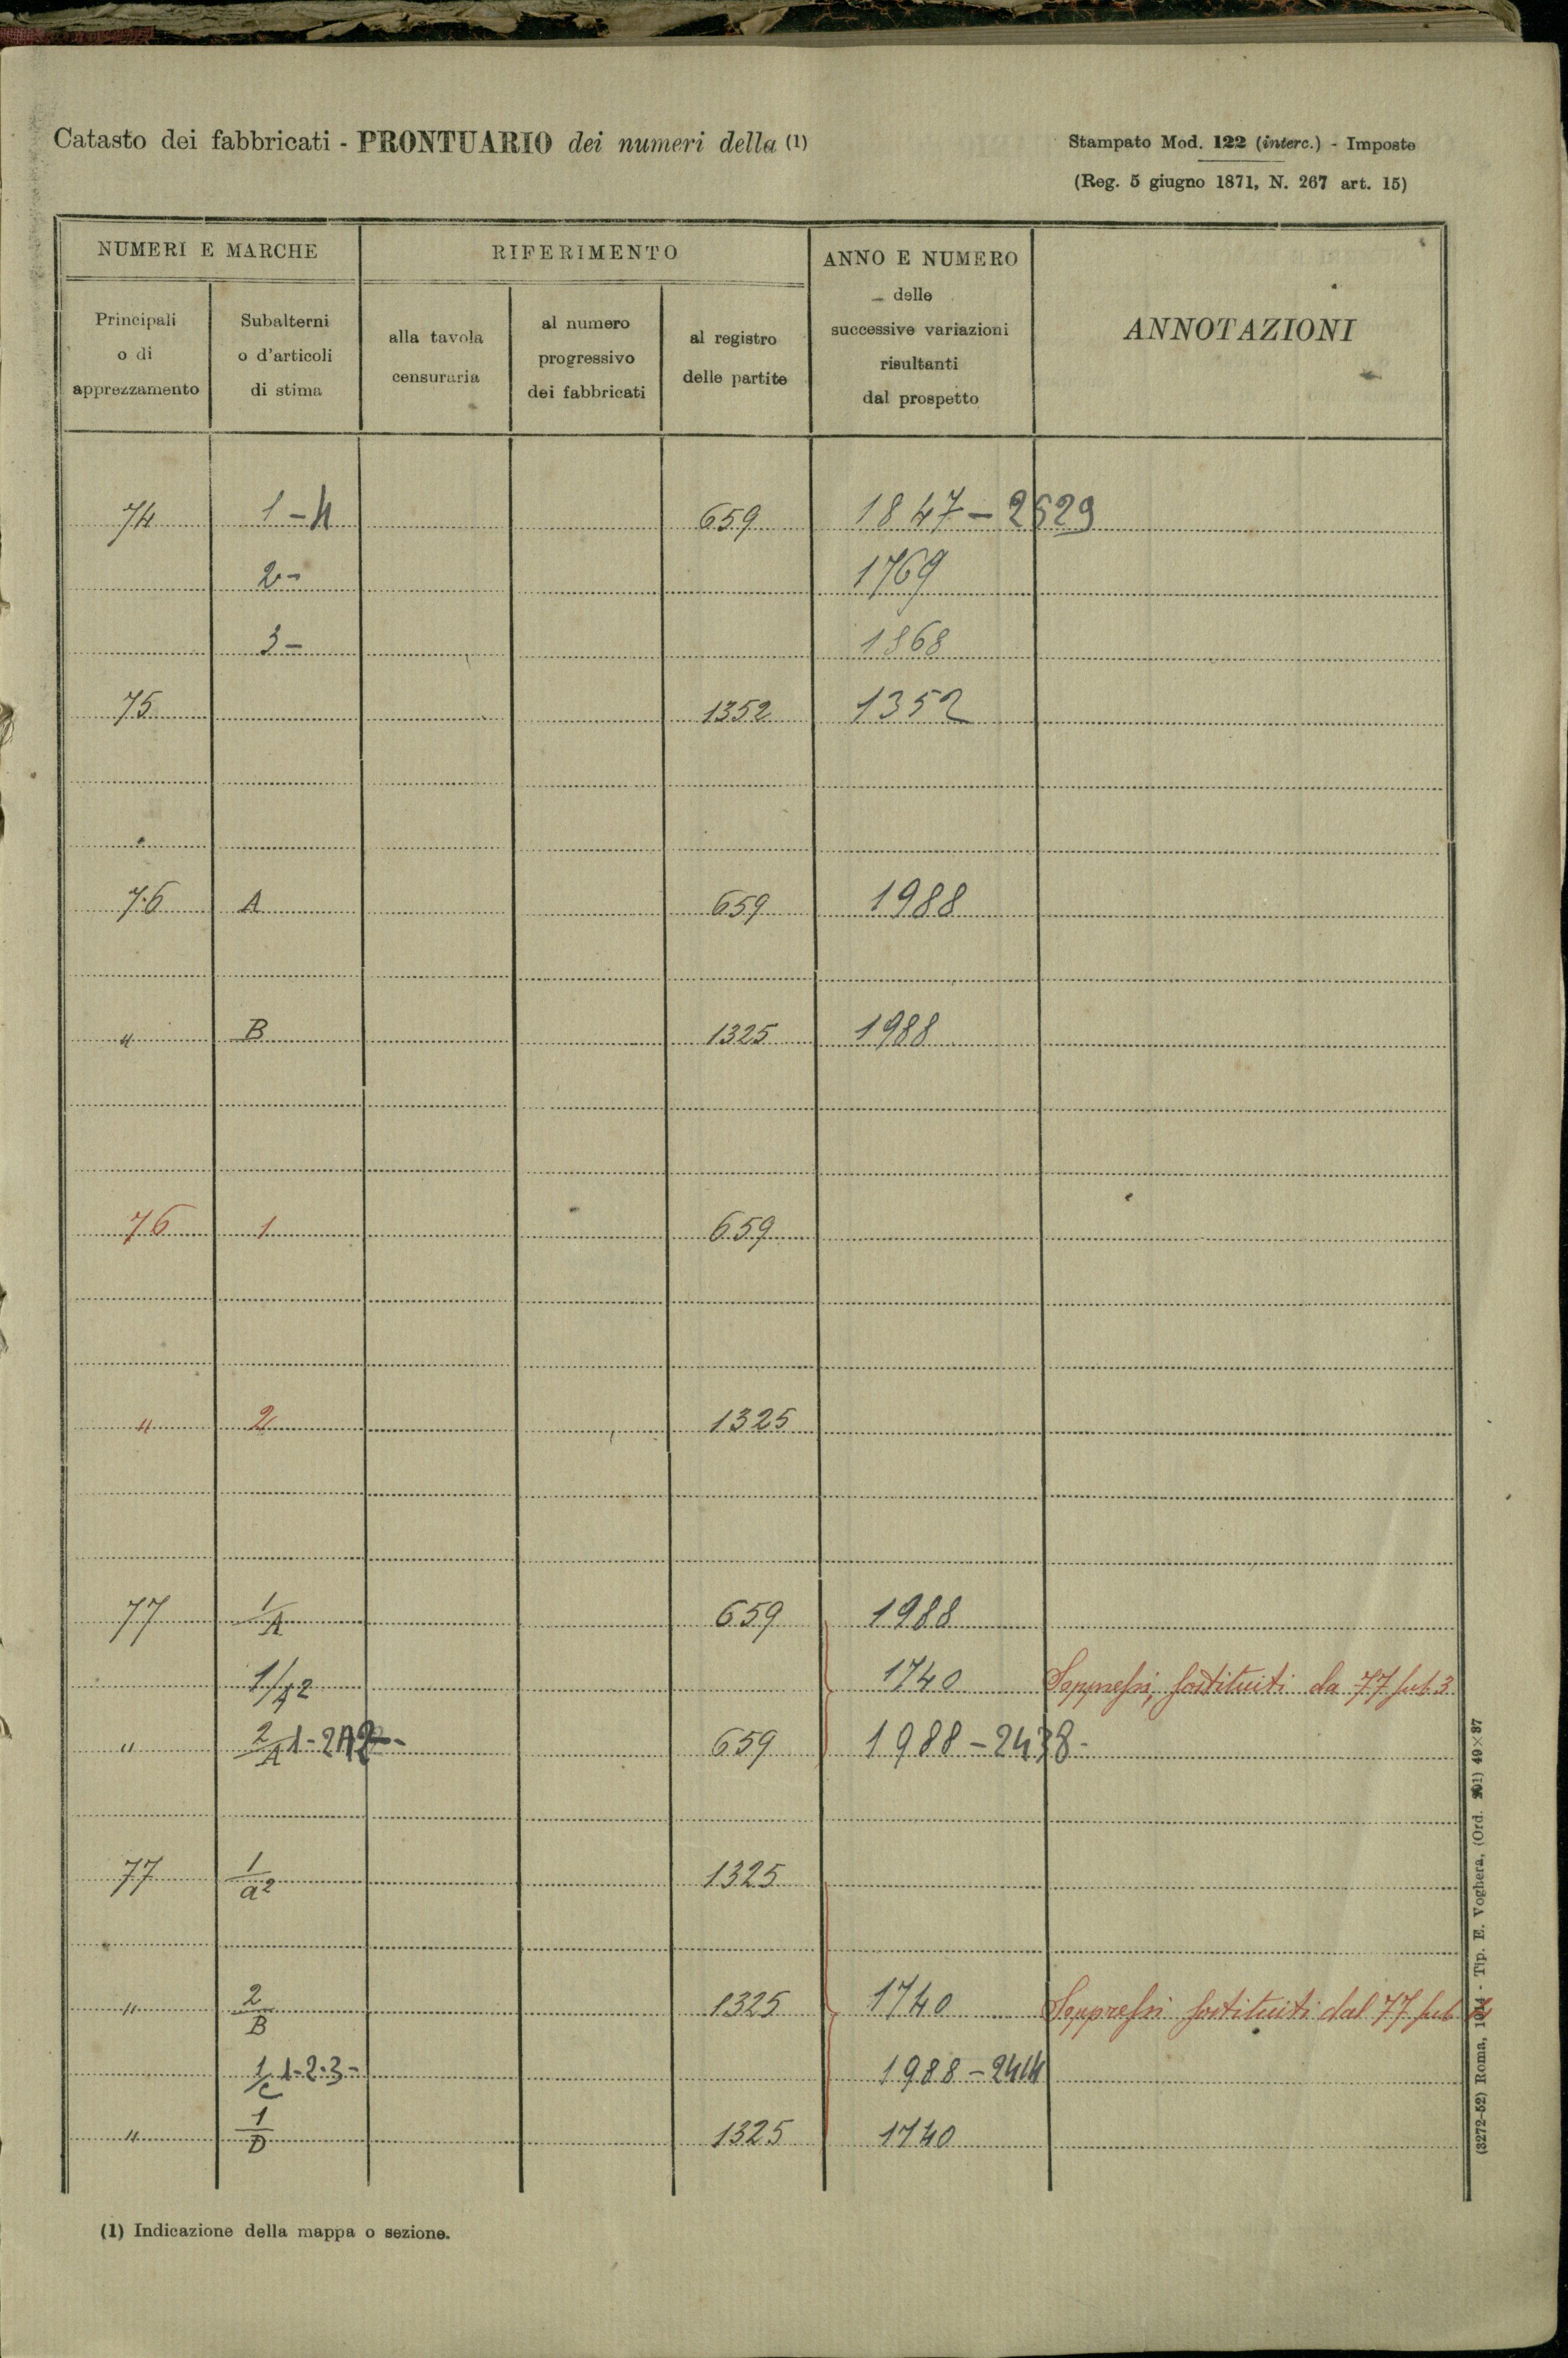 Catasto dei fabbricati - PRONTUARIO dei numeri della (1)
Stampato Mod. 122 (interc.) - Imposte
(Reg. 5 giugno 1871, N. 267 art. 15)
NUMERI E MARCHE
RIFERIMENTO
ANNO E NUMERO
delle
successive variazioni
risultanti
dal prospetto
ANNOTAZIONI
Principali
o di
apprezzamento
Subalterni
o d'articoli
di stima
alla tavola
censuraria
al numero
progressivo
dei fabbricati
al registro
delle partite
74 1-4 659 1847-2629
2- 1769
3- 1868
75 1352 1352
76 A 659 1988
" B 1325 1988
76 1 659
" 2 1325
77 1/A 659 1988
1/A2 1740 Soppressi, sostituiti da 77 sub. 3
" 2/A 1-2A2- 659 1988-2438-
77 1/a2 1325
" 2/B 1325 1740 Soppressi sostituiti dal 77 sub
1/C 1-2-3- 1988-2414
" 1/D 1325 1740
(1) Indicazione della mappa o sezione.
(3272-52) Roma, - Tip. E. Voghera, (Ord. 201) 49×37